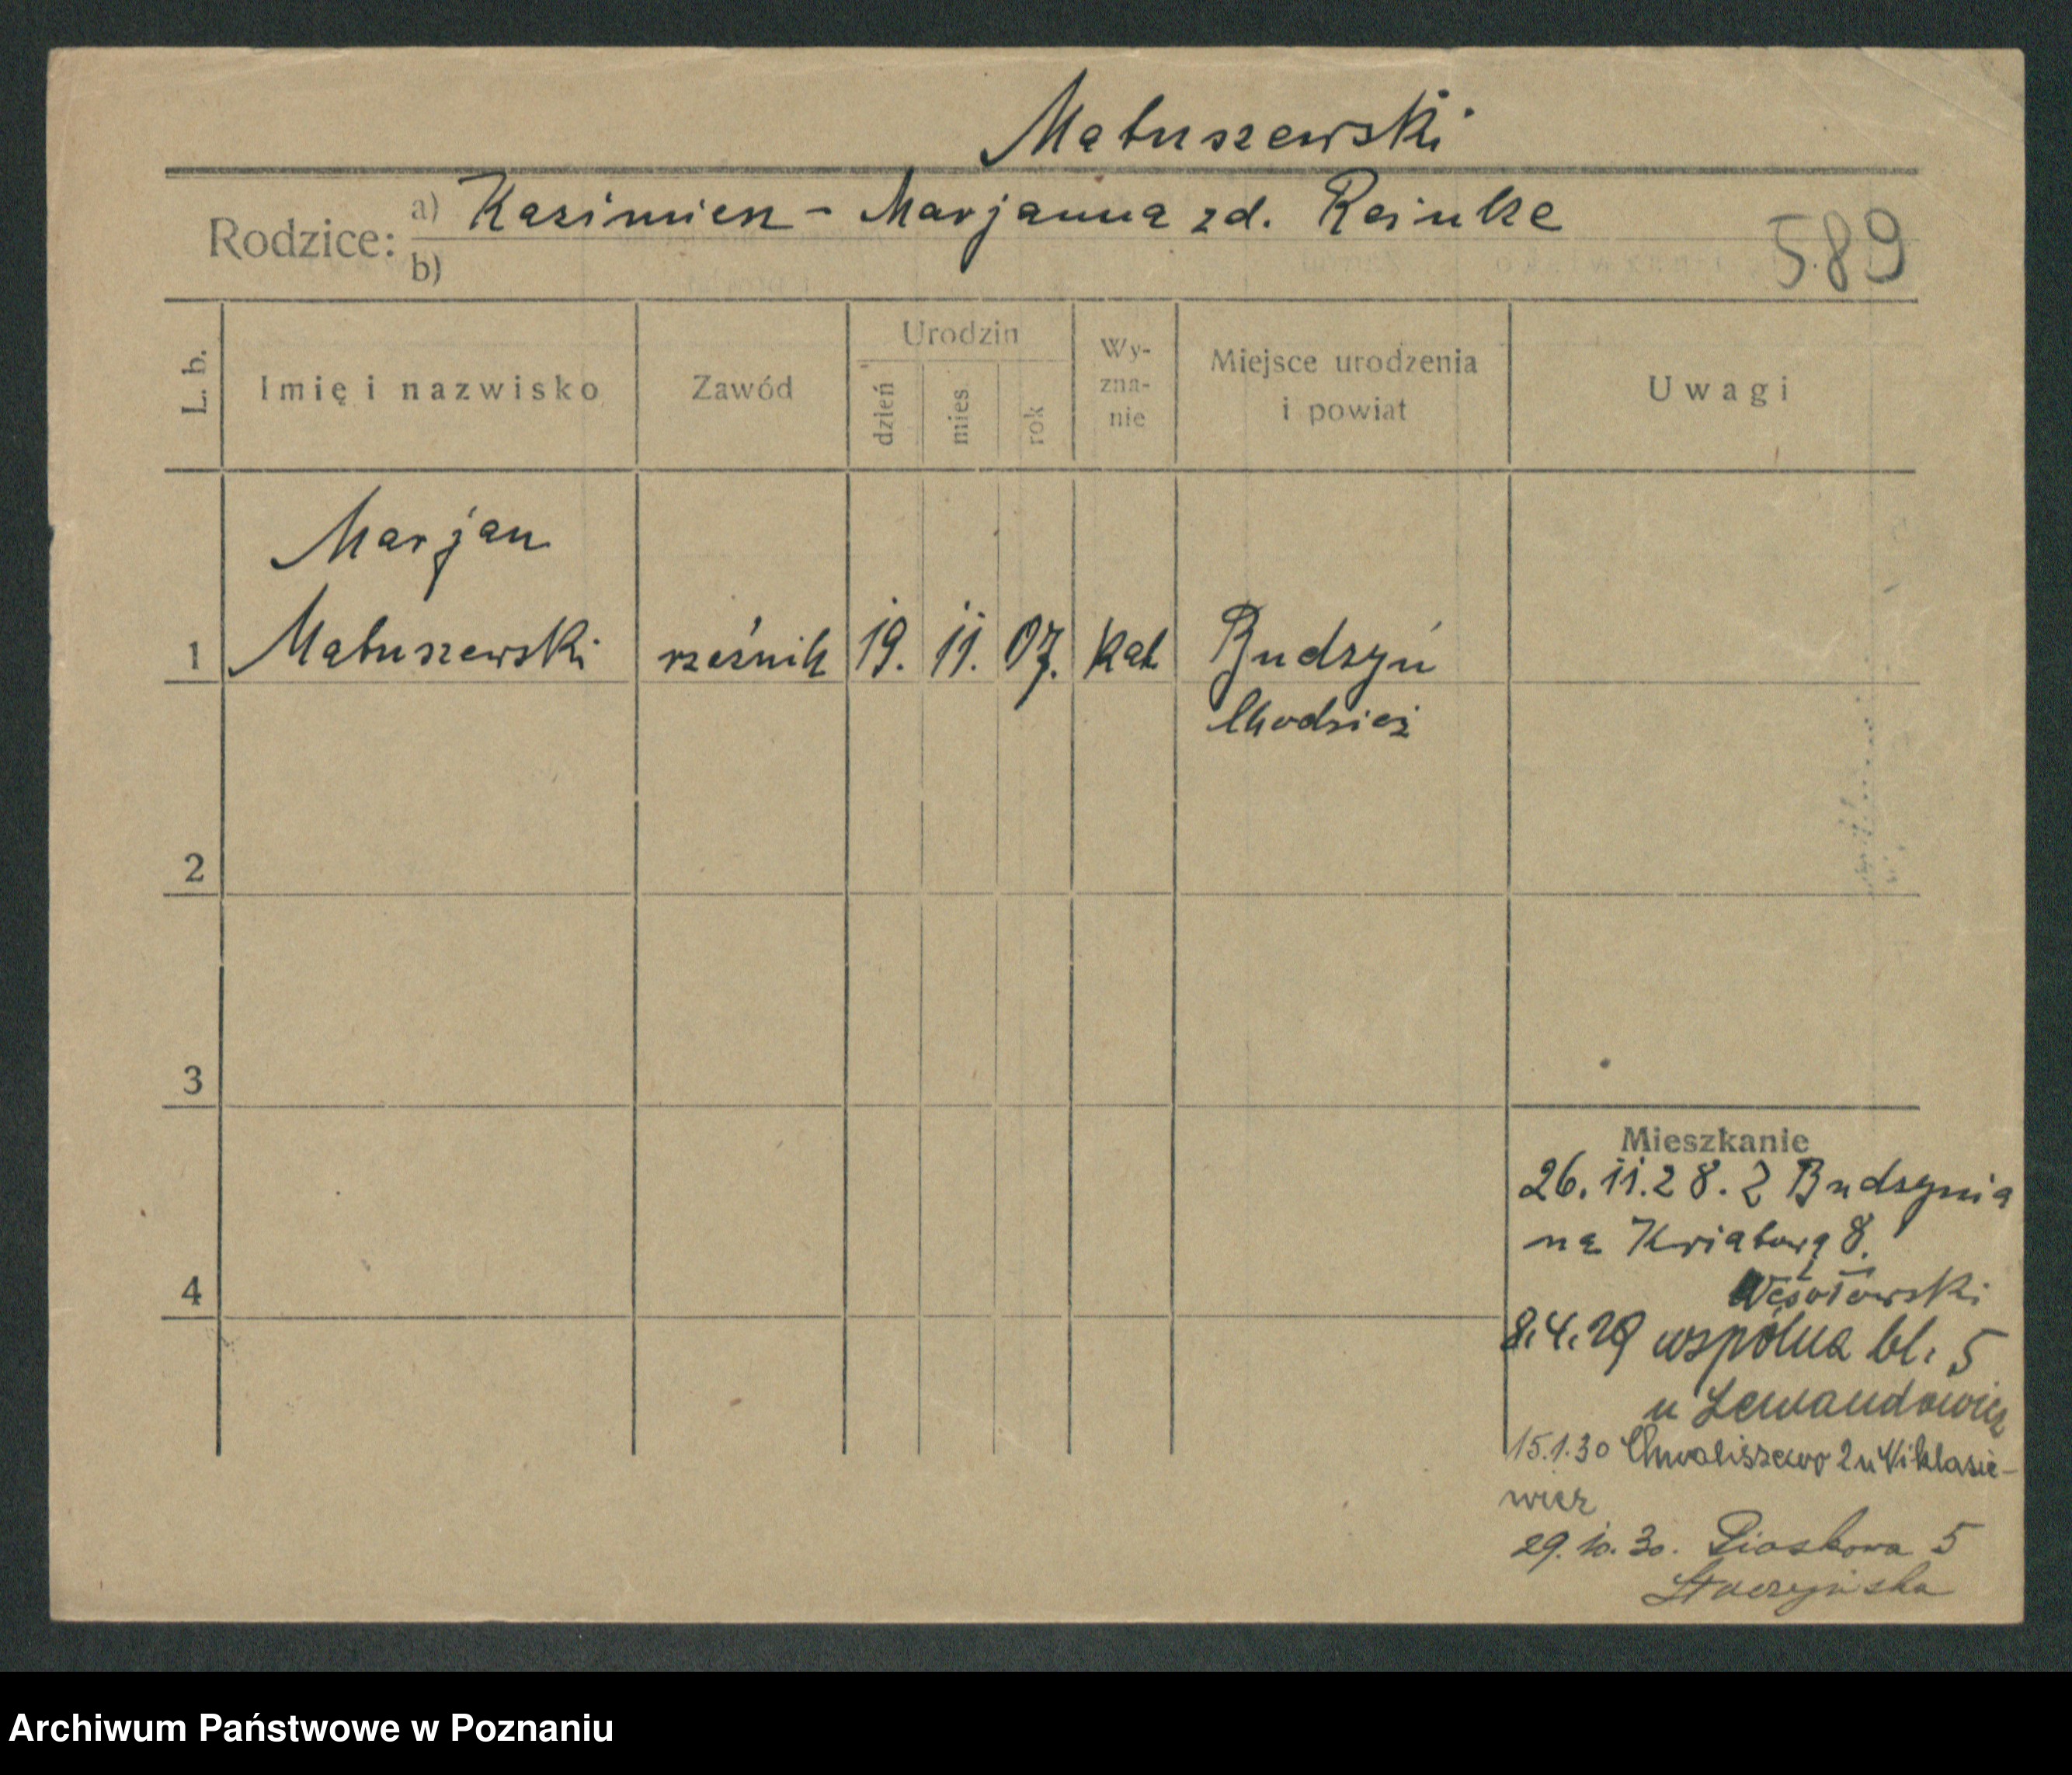 Matuszewski
Rodzice: a) Kazimierz - Marjanna zd. Reinke
b)
589
L. b.
Imię i nazwisko
Zawód
Urodzin
dzień
mies
rok
Wy-
zna-
nie
Miejsce urodzenia
i powiat
Uwagi
Marjan
1 Matuszewski rzeźnik 19. 11. 07. kat Budzyń
Chodzież
2
3
Mieszkanie
26.11.28. Z Budzynia
na Kwiatową 8.
4
Wesołowski
8.4.29 wspólna bl. 5
u Lewandowicz
15.1.30 Chwaliszewo 2 u Niklasie-
wicz
29.10.30. Piaskowa 5
Archiwum Państwowe w Poznaniu